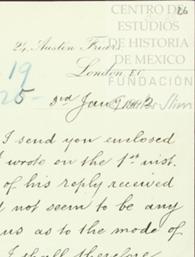 CENTRO DE
ESTUDIOS
DE HISTORIA
DE MEXICO
FUNDACIÓN
Carlos Slim
26
24, Austin Friars
London E.C.
19
25
3rd Jan
I send you enclosed
I wrote on the 1st inst.
of his reply received
d not seem to be any
us as to the mode of
I shall therefore